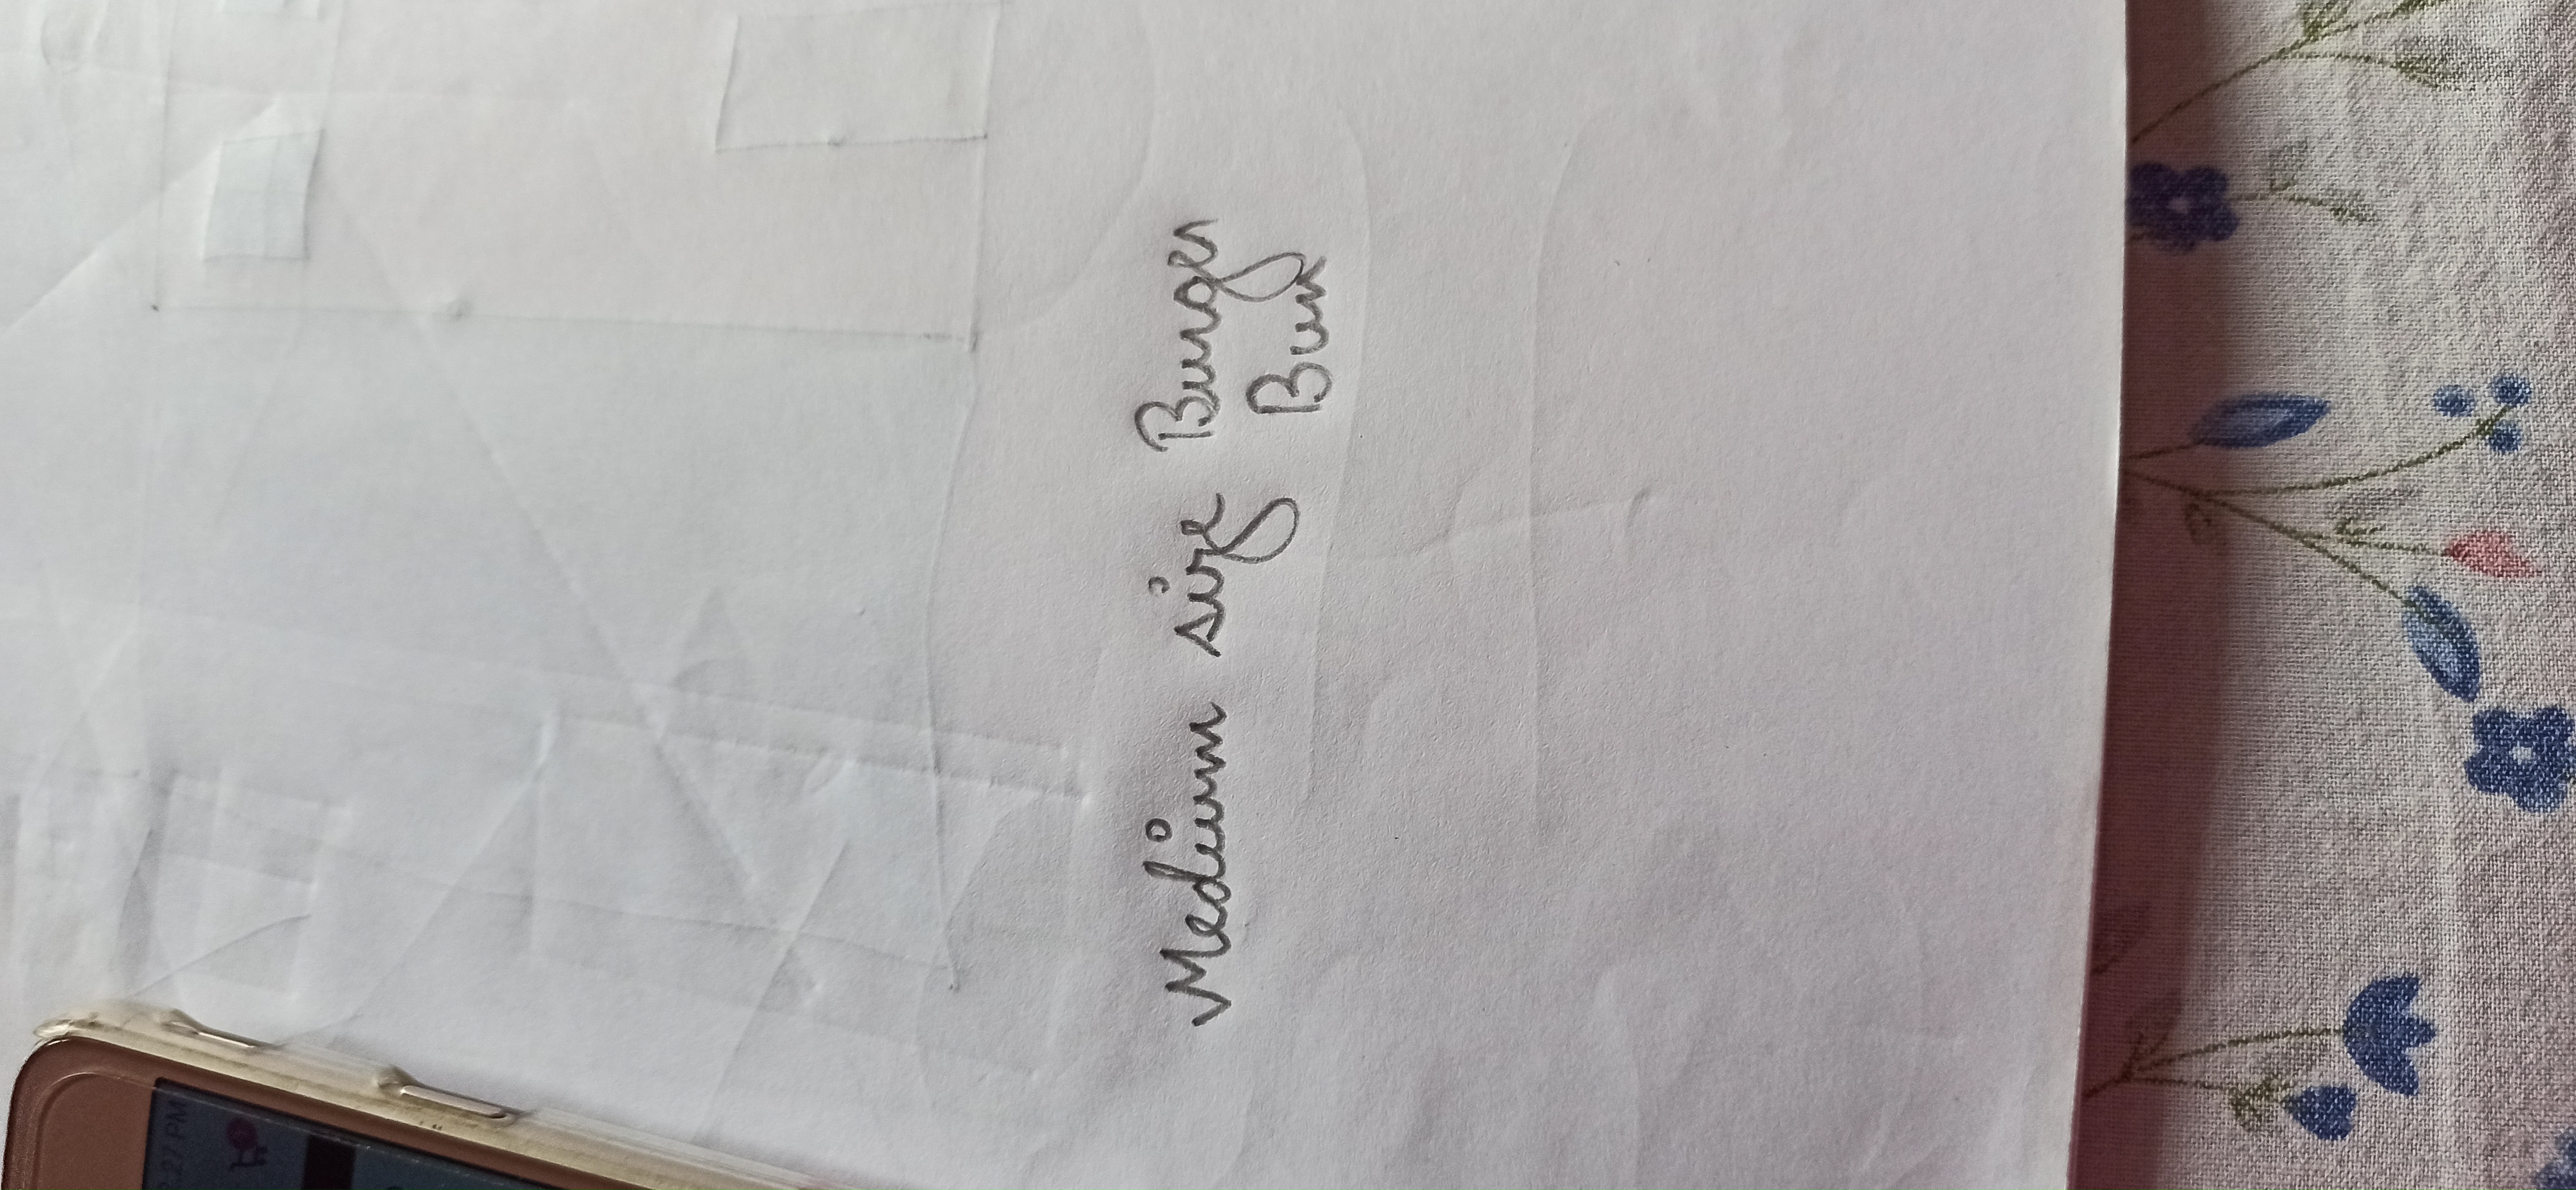 2:27 PM
Medium size Burger
Bun